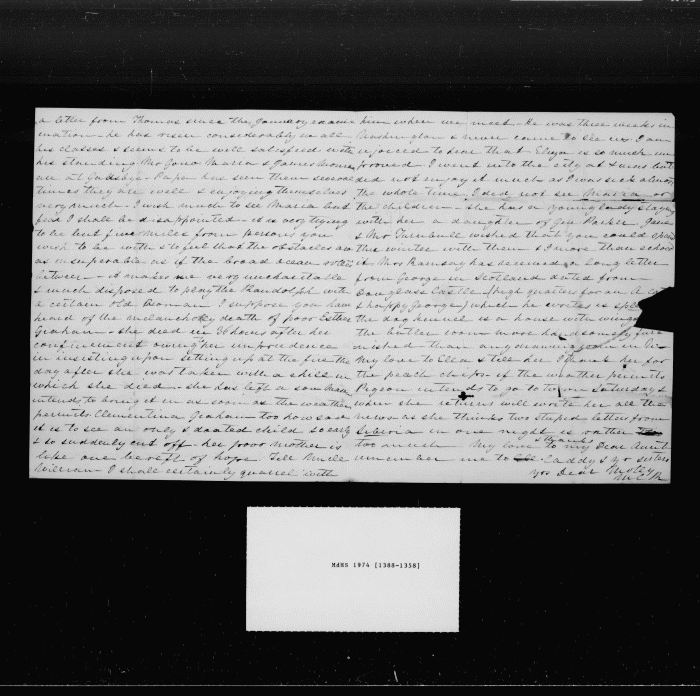 a letter from Thomas since the January exami
nation - he has risen considerably in all
his classes & seems to be well satisfied with
his standing Mr Maria & James
are at Gadsby's - Papa has seen them several
times they are well & enjoying themselves
very much - I wish much to see Maria but
fear I shall be disappointed - it is very trying
to be but five miles from persons you
wish to be with & to feel that the obstacles are
as insuperable as if the broad ocean rolled
between - it makes me very uncharitable
& much disposed to play the Randolph with
a certain old Woman - I suppose you have
heard of the melancholy death of poor Ester
Graham - she died in 36 hours after her
confinement owing to her imprudence
in insisting upon setting up at the fire the
day after she was taken with a chill in
which she died - she has left a son
intends to bring it in as soon as the weather
permits Clementina Graham too how sad
it is to see an only & doated child so early
& so suddenly cut off her poor Mother is
like one bereft of hope. Tell
William I shall certainly quarrel with
him when we meet - He was three weeks in
Washington & never came to see us I am
rejoiced to hear that Eliza is so much im
proved I went into the city at but
did not enjoy it much as I was sick almost
the whole time I did not see Maria or
the children - she has a young lady staying
with her a daughter of Gen Parker
& Mr Turnbull wished that you could spend
this winter with them & I more than echoed
it. Mrs Ramsay has received a long letter
from George in Scotland dated from
Douglass Castle (high quarters for an
& happy George) which he writes is
the day himself is a house with
the butler's room more handsomely fur
nished than any
My love to Ella & tell her I thank her for
the peach chips - if the weather permits
Pigeon intends to go to town Saturday &
when she returns will write her all the
news as she thinks two stupid letters from
Siberia in one night is rather
too much My love & thanks to my Dear Aunt
remember me to Laddy & yr sisters
yrs Dear
M C R
MdHS 1974 [1388-1358]